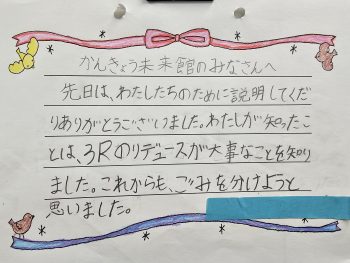 かんきょう未来館のみなさんへ
先日は、わたしたちのために説明してくだ
りありがとうございました。わたしが知ったこ
とは、3Rのリデュースが大事なことを知り
ました。これからも、ごみを分けようと
思いました。